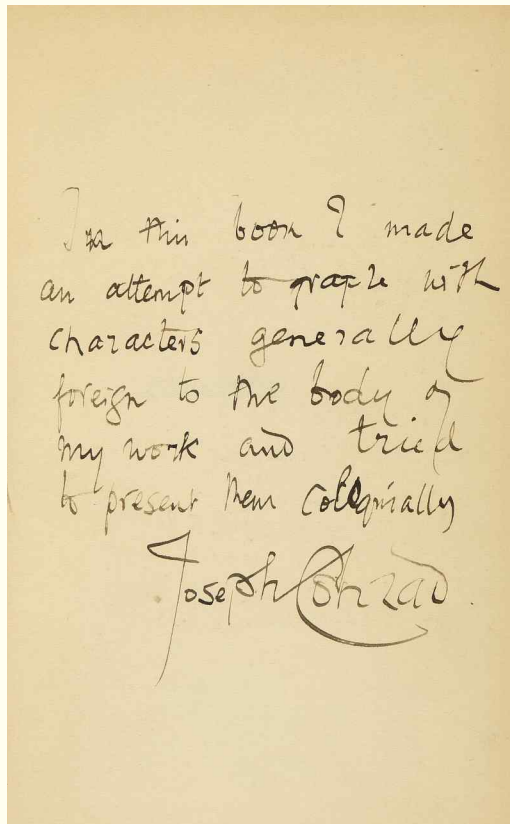 In this book I made
an attempt to graple with
characters generally
foreign to the body of
my work and tried
to present them colloquially
Joseph Conrad.